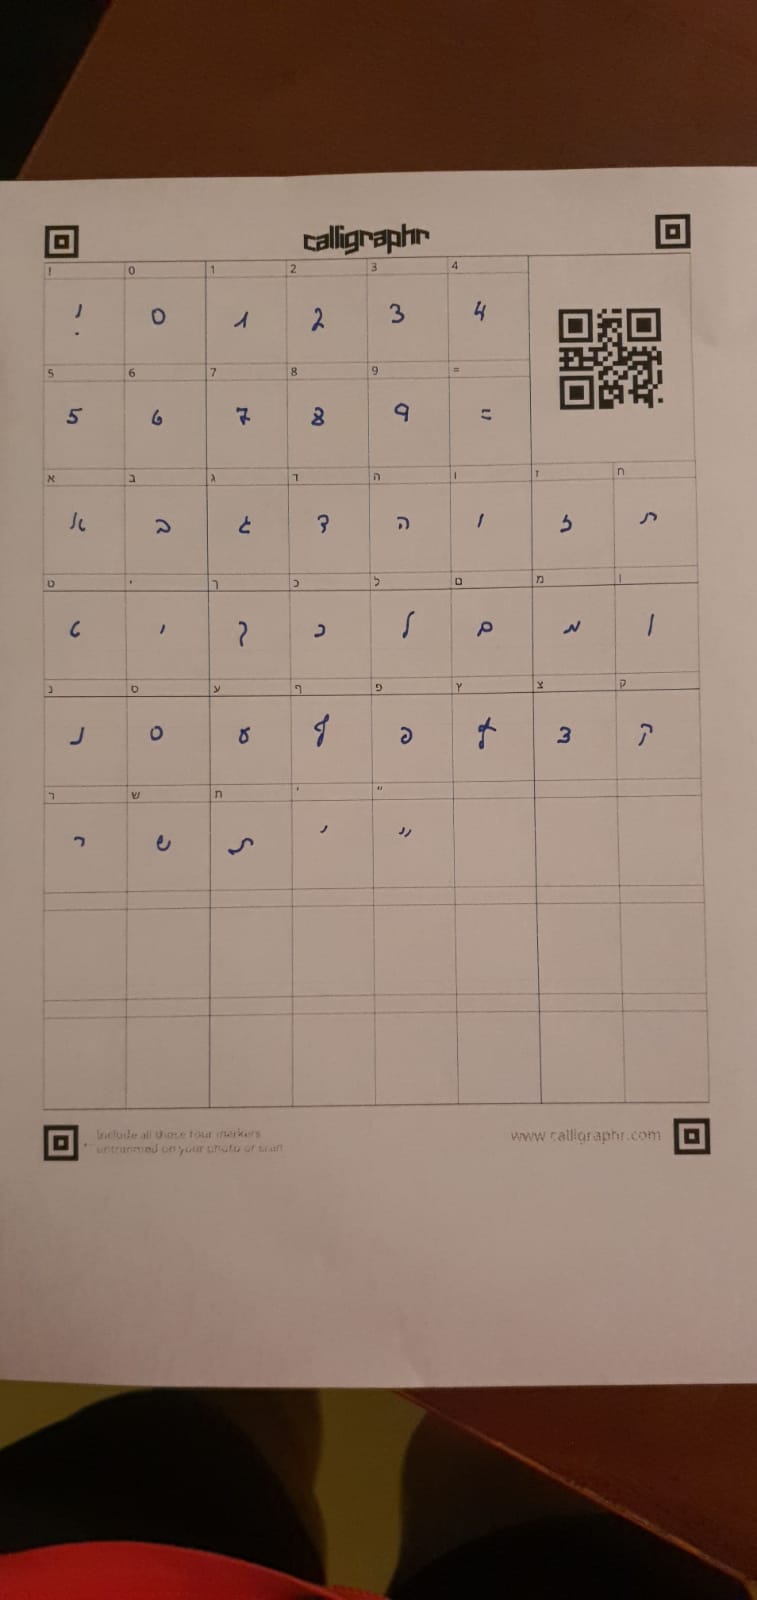 calligraphr
! 0 1 2 3 4
! 0 1 2 3 4
5 6 7 8 9 =
5 6 7 8 9 =
א ב ג ד ה ו ז ח
א ב ג ד ה ו ז ח
ט י ך כ ל ם מ ן
ט י ך כ ל ם מ ן
נ ס ע ף פ ץ צ ק
נ ס ע ף פ ץ צ ק
ר ש ת ׳ ״
ר ש ת ׳ ״
Include all these four markers
untrimmed on your photo or scan
www.calligraphr.com